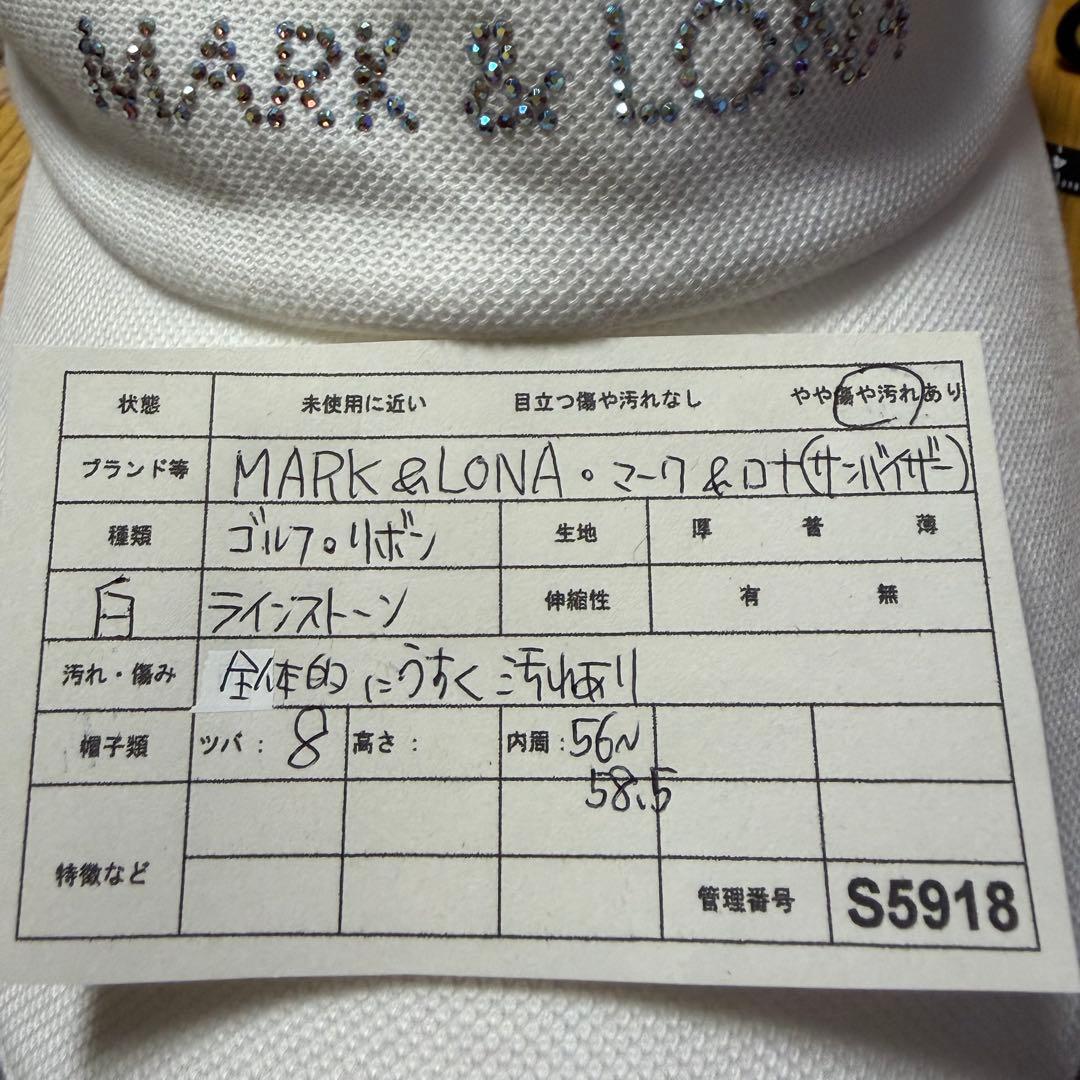 MARK & LONA
状態 未使用に近い 目立つ傷や汚れなし やや傷や汚れあり
ブランド等 MARK &LONA・マーク&ロナ(サンバイザー)
種類 ゴルフ。リボン 生地 厚 普 薄
白 ラインストーン 伸縮性 有 無
汚れ・傷み 全体的にうすく汚れあり
帽子類 ツバ: 8 高さ: 内周:56~
58.5
特徴など 管理番号 S5918